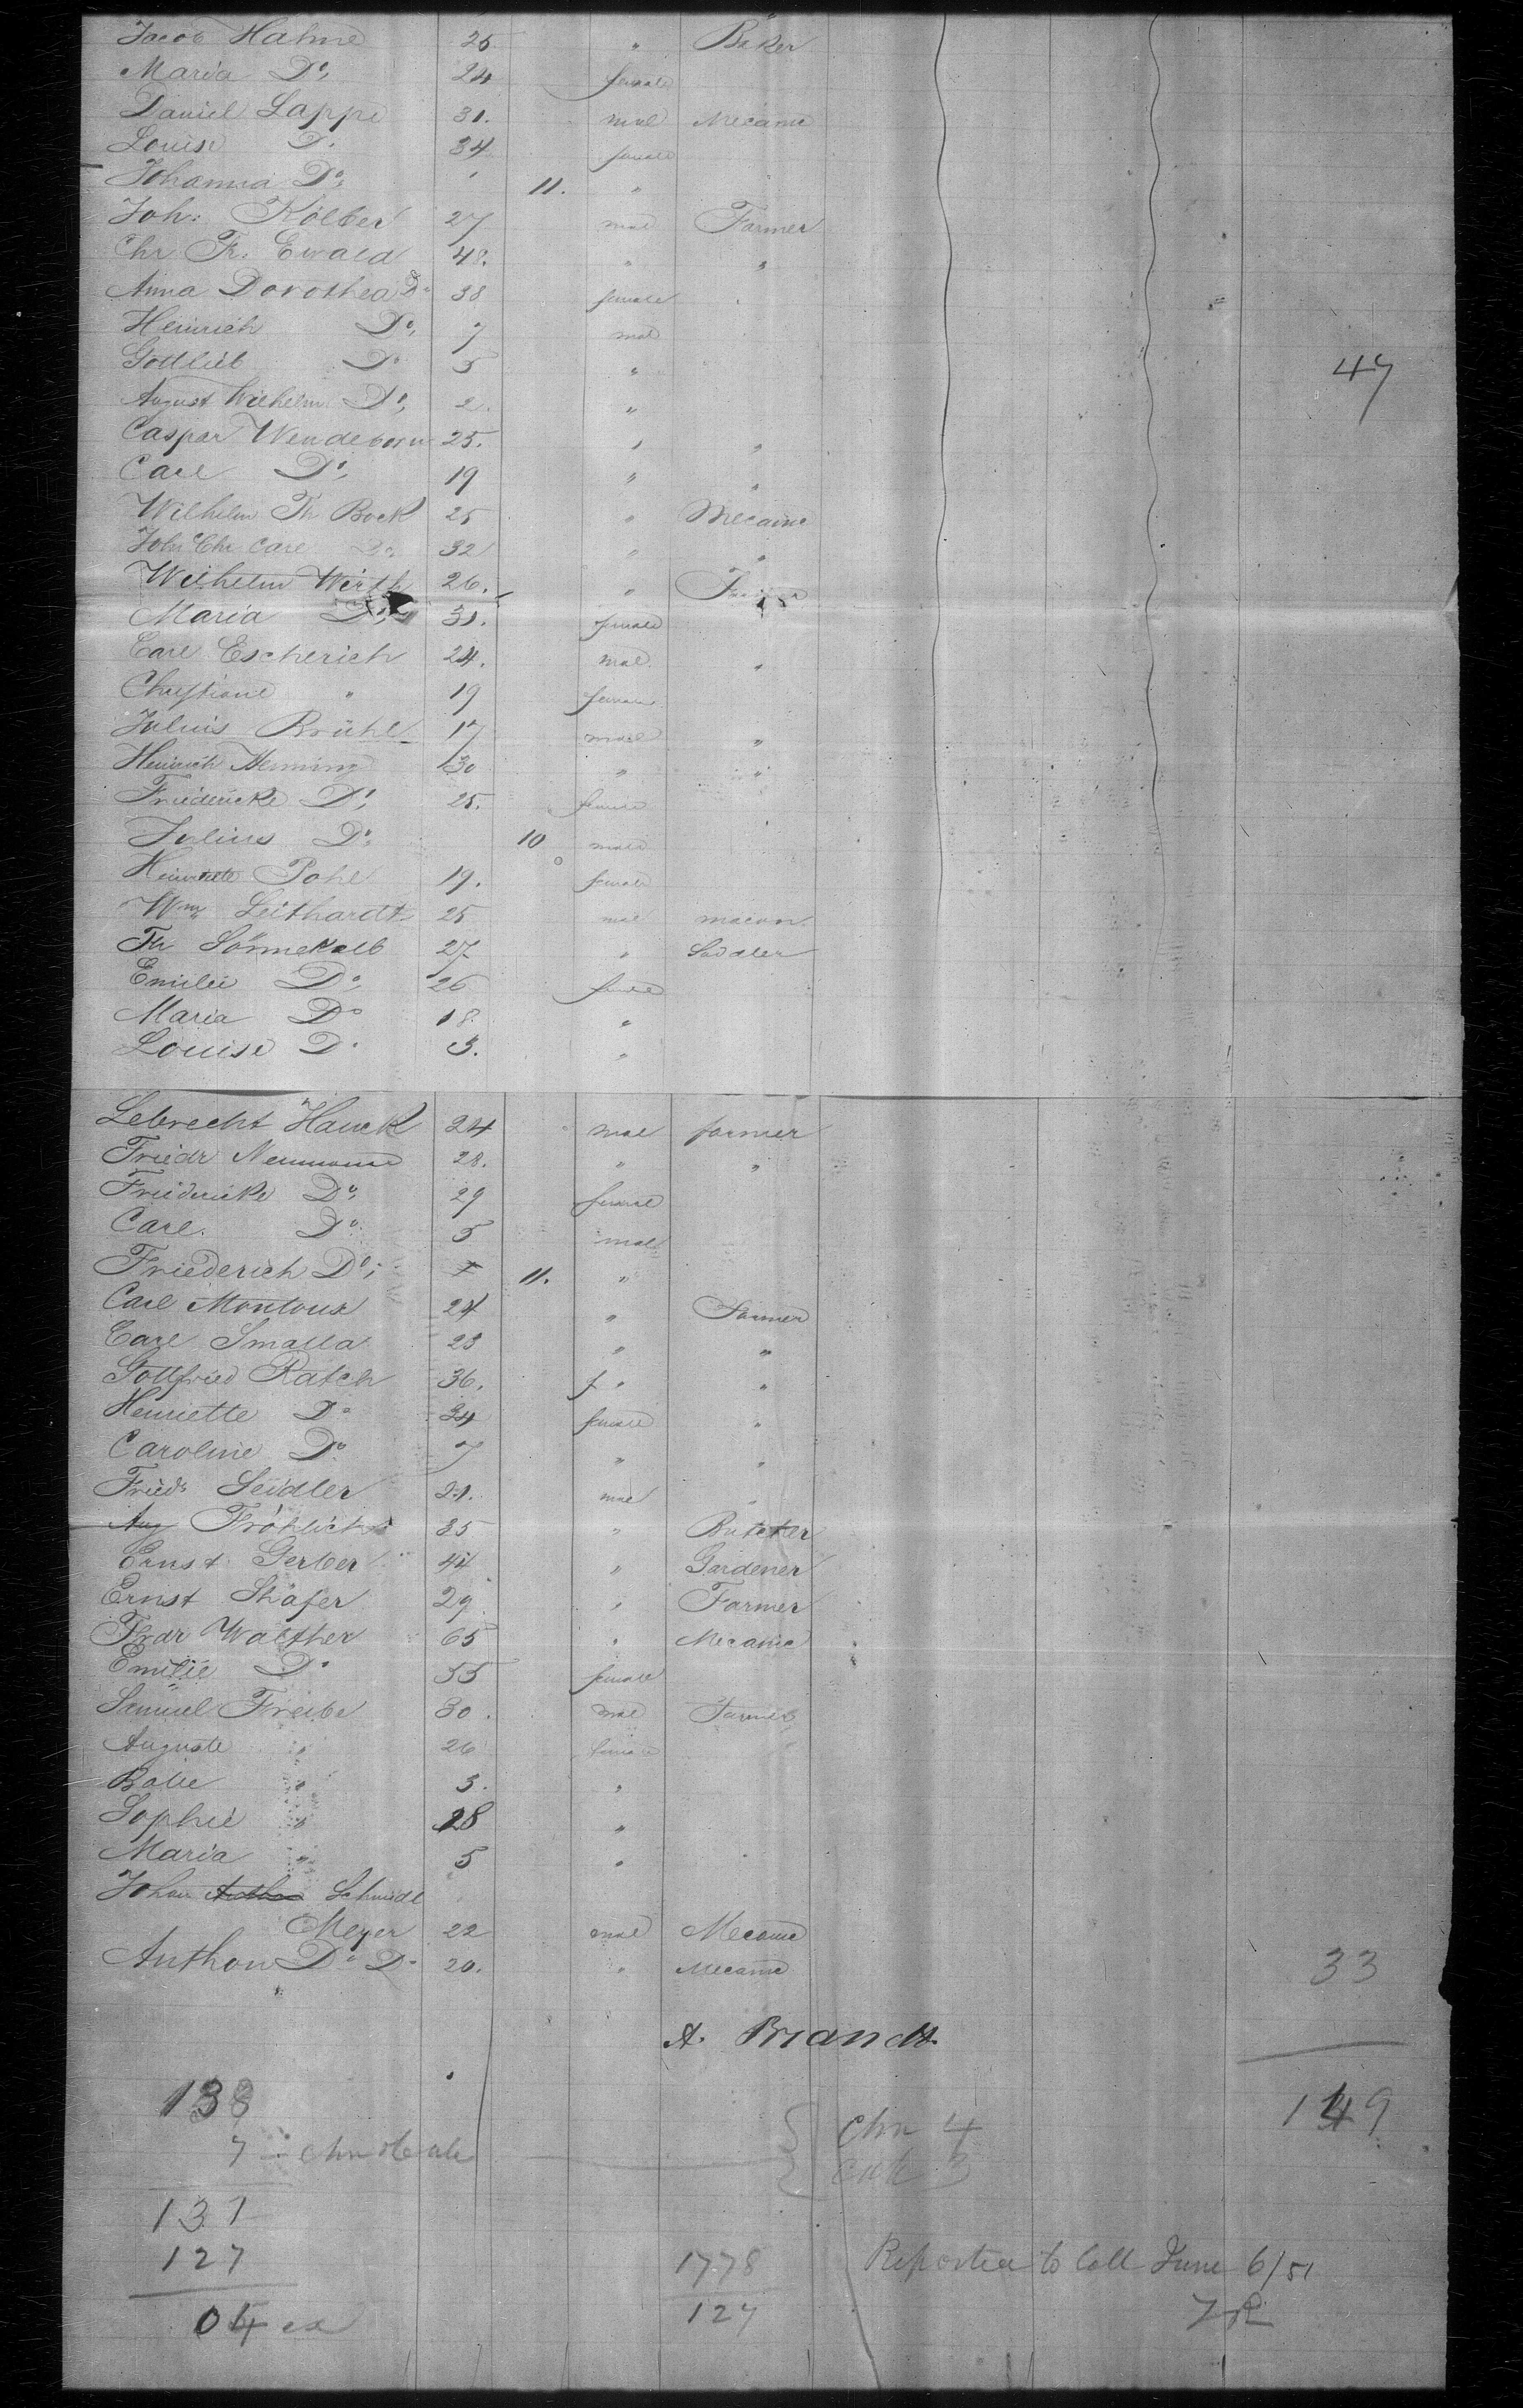 Jacob Hahne 25 " Baker
Maria Do, 24 female
Daniel Lappe 31. mal Mecanic
Louise D. 34 female
Johanna Do, 11. "
Joh: Kölber 27 mal Farmer
Chr Fr. Ewald 48. " "
Anna Dorothea Do 38 female
Heinrich Do, 7 mal
Gottlieb Do 5 " 47
August Wilhelm Do, 2. "
Caspar Wendeborn 25. " "
Carl Do, 19 " "
Wilhelm Th Bock 25 " Mecanic
Joh Chr Carl Do 32 " "
Wilhelm Wirth 26. "
Maria Do 31. female
Carl Escherich 24. mal "
Christiane " 19 female
Julius Brühl 17 male "
Heinrich Henning 30 " "
Friedericke Do, 25. female
Julius Do 10 male
Henriette Pohl 19. female
Wm Leithardt 25 mal macon
Fr Sönnekalb 27 " Saddler
Emilie Do, 26 female
Maria Do 18. "
Louise D. 3. "
Lebrecht Hauck 24 mal farmer
Friedr Neumann 28. " "
Friedericke Do, 29 female
Carl. Do 5 male
Friederich Do, 11. "
Carl Montoux 24 " Farmer
Carl Smalla 23 " "
Gottfried Ratch 36. f " "
Henriette Do 34 female "
Caroline Do 7 " "
Friedr Seidler 21. mal "
Aug Fröhlich 35 " Butcher
Ernst Gerber 44 " Gardener
Ernst Shäfer 29 " Farmer
Frdr Walther 65 " Mecanic
Emilie Do 55 female
Samuel Freibe 30. mal Farmer
Auguste " 26 female
" 3. "
Sophie " 28 "
Maria " 5 "
Johan Anthon Schmidt
Meyer 22 mal Mecanic
Anthon Do Do 20. " Mecanic 33
A. Brandt
138 149
7 Chn 4
3
131
127 1778 Reported to Coll June 6/51
04 127